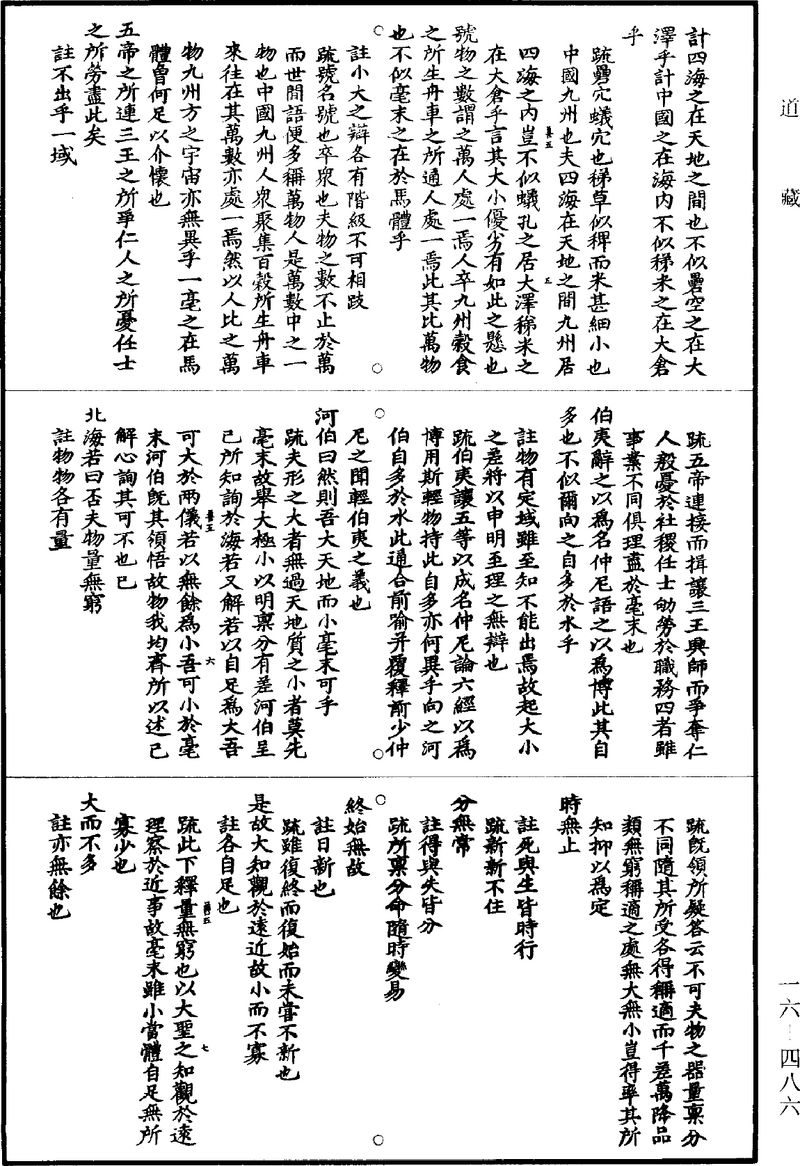 道藏
計四海之在天地之間也不似礨空之在大
澤乎計中國之在海内不似稊米之在大倉
乎
疏礨穴蟻穴也稊草似稗而米甚細小也
中國九州也夫四海在天地之間九州居
四海之内豈不似蟻孔之居大澤稊米之
在大倉乎言其大小優劣有如此之懸也
號物之數謂之萬人處一焉人卒九州穀食
之所生舟車之所通人處一焉此其比萬物
也不似毫末之在於馬體乎
註小大之辯各有階級不可相跂
疏號名號也卒衆也夫物之數不止於萬
而世間語便多稱萬物人是萬數中之一
物也中國九州人衆聚集百穀所生舟車
來往在其萬數亦處一焉然以人比之萬
物九州方之宇宙亦無異乎一毫之在馬
體曾何足以介懷也
五帝之所連三王之所爭仁人之所憂任士
之所勞盡此矣
註不出乎一域
疏五帝連接而揖讓三王興師而爭奪仁
人殷憂於社稷任士劬勞於職務四者雖
事業不同俱理盡於毫末也
伯夷辭之以爲名仲尼語之以爲博此其自
多也不似爾向之自多於水乎
註物有定域雖至知不能出焉故起大小
之差將以申明至理之無辯也
疏伯夷讓五等以成名仲尼論六經以爲
博用斯輕物持此自多亦何異乎向之河
伯自多於水此通合前喻并覆釋前少仲
尼之聞輕伯夷之義也
河伯曰然則吾大天地而小毫末可乎
疏夫形之大者無過天地質之小者莫先
毫末故舉大極小以明禀分有差河伯呈
己所知詢於海若又解若以自足爲大吾
可大於兩儀若以無餘爲小吾可小於毫
末河伯既其領悟故物我均齊所以述己
解心詢其可不也已
北海若曰否夫物量無窮
註物物各有量
疏既領所疑答云不可夫物之器量禀分
不同隨其所受各得稱適而千差萬降品
類無窮稱適之處無大無小豈得率其所
知抑以爲定
時無止
註死與生皆時行
疏新新不住
分無常
註得與失皆分
疏所禀分命隨時變易
終始無故
註日新也
疏雖復終而復始而未嘗不新也
是故大知觀於遠近故小而不寡
註各自足也
疏此下釋量無窮也以大聖之知觀於遠
理察於近事故毫末雖小當體自足無所
寡少也
大而不多
註亦無餘也
一六—四八六